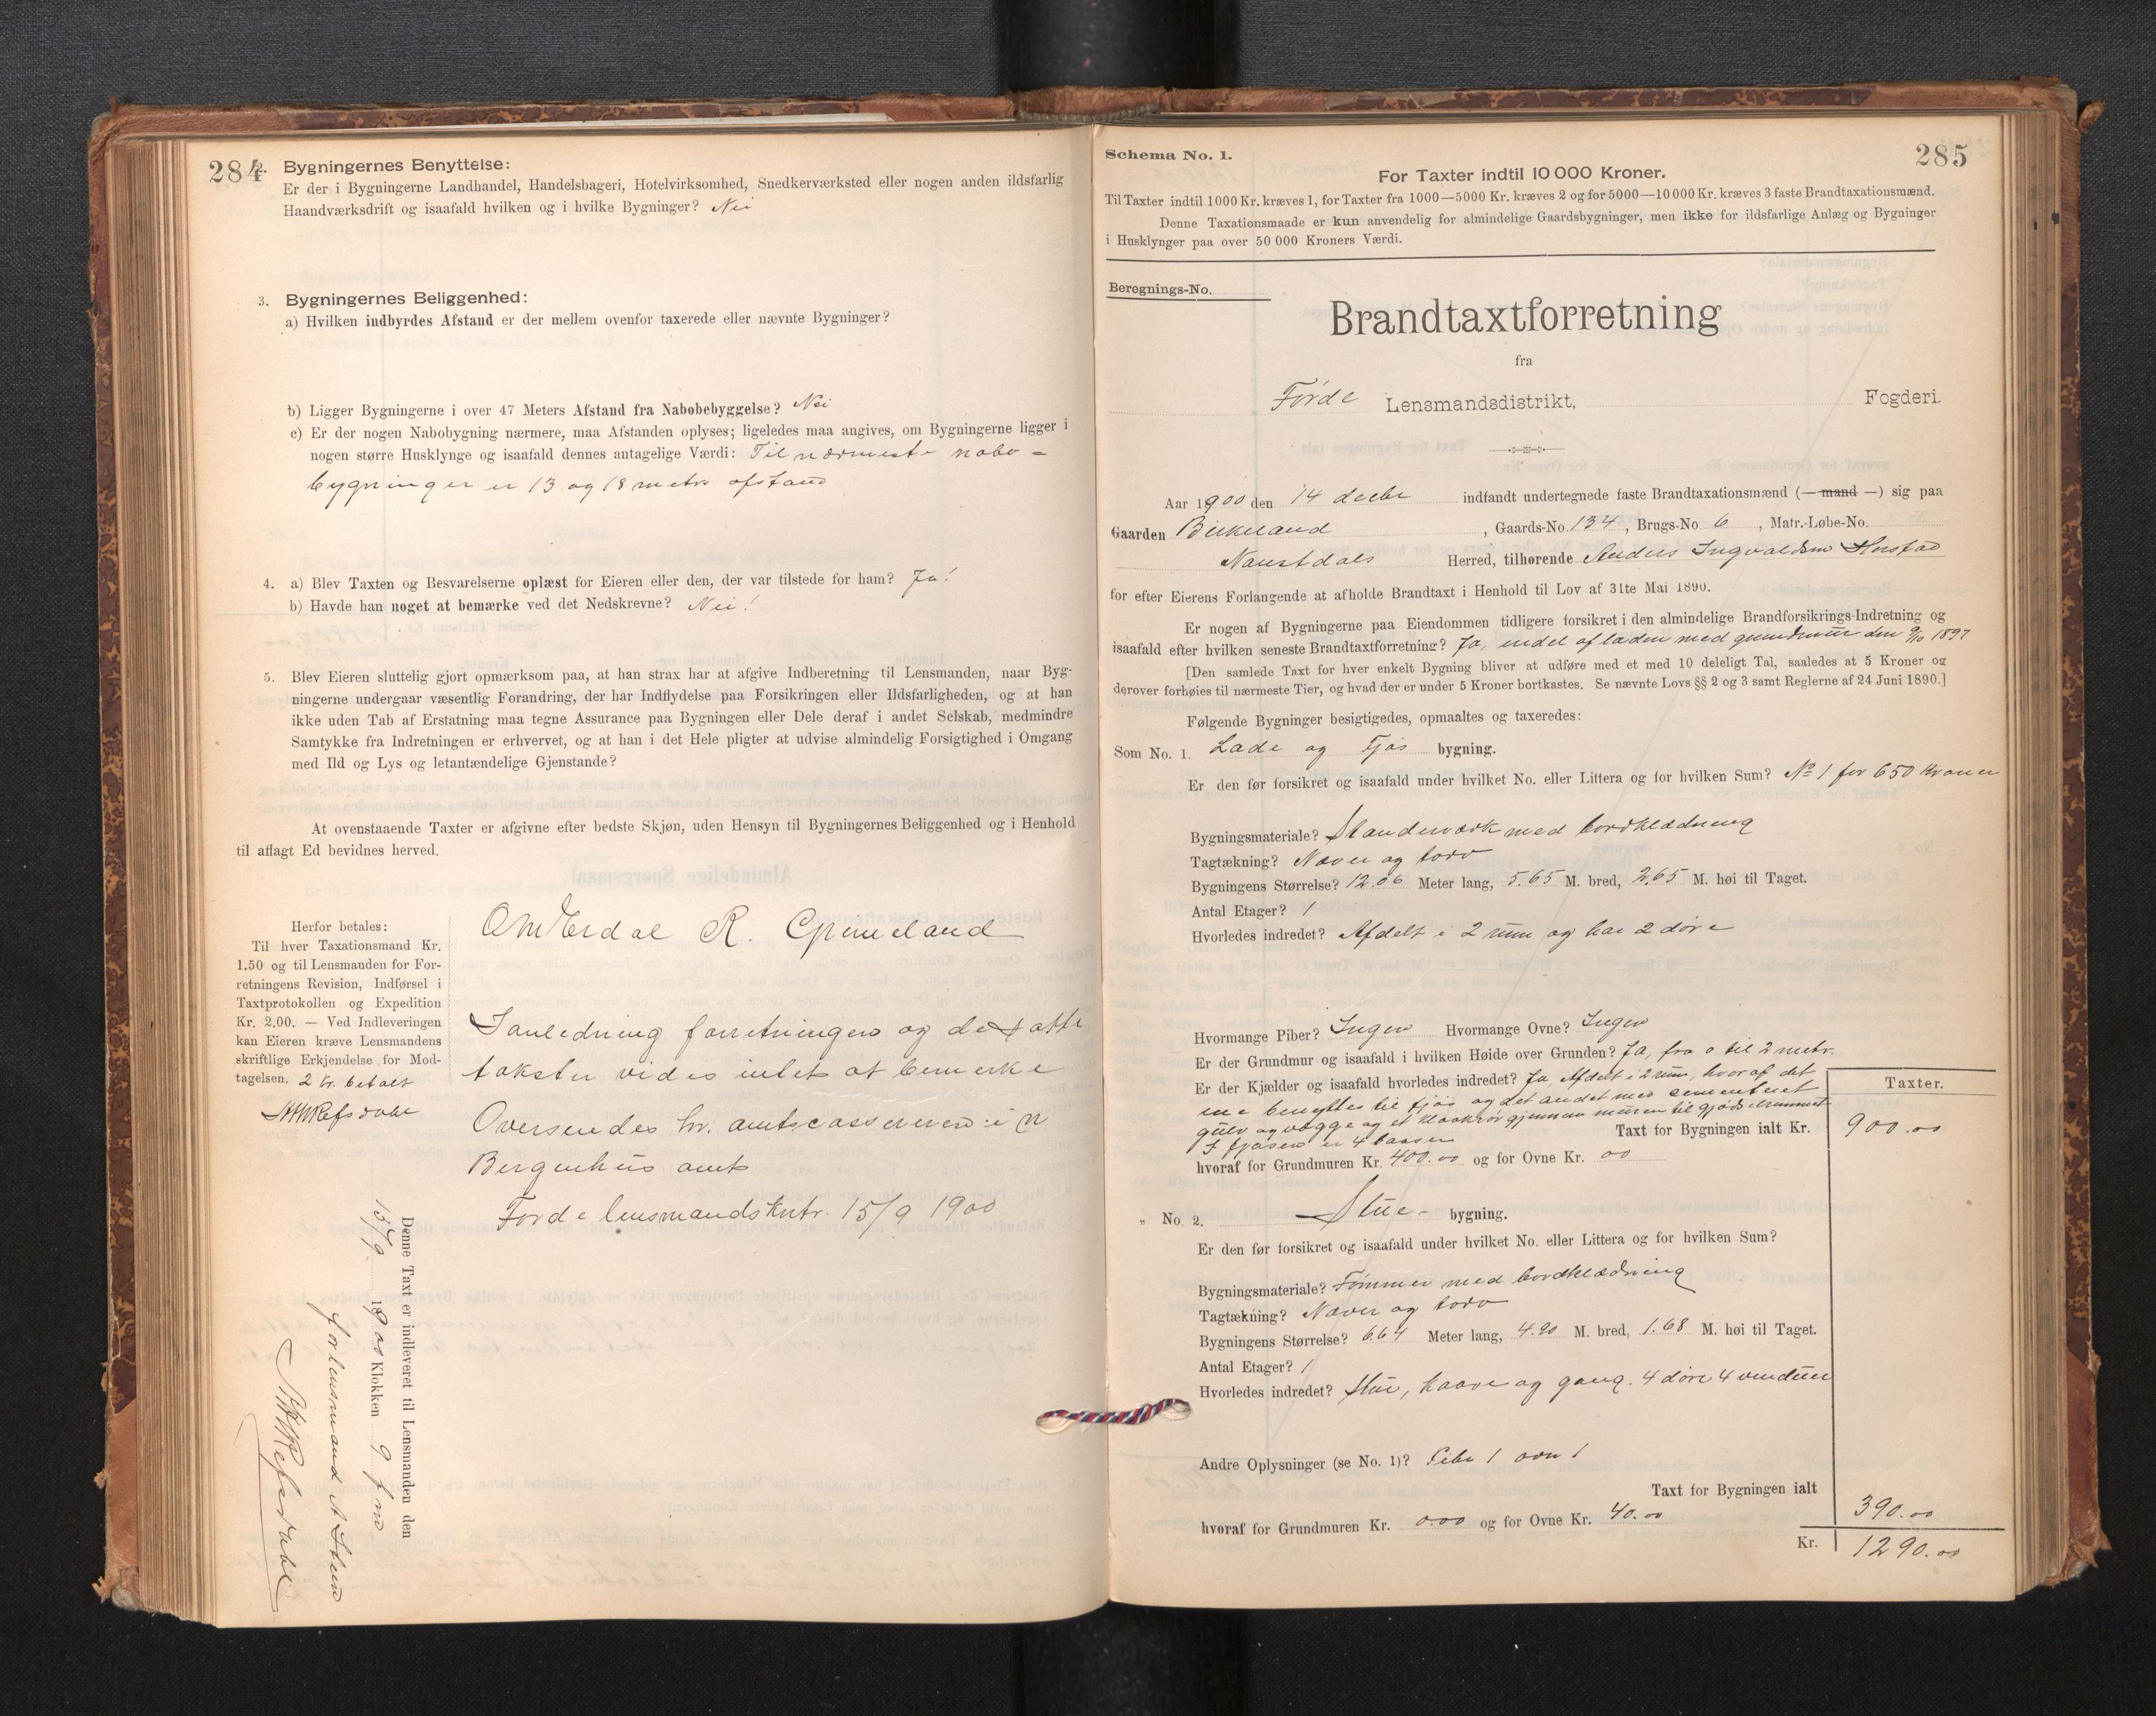 284
2. Bygningernes Benyttelse:
Er der i Bygningerne Landhandel, Handelsbageri, Hotelvirksomhed, Snedkerværksted eller nogen anden ildsfarlig
Haandværksdrift og isaafald hvilken og i hvilke Bygninger? Nei
3. Bygningernes Beliggenhed:
a) Hvilken indbyrdes Afstand er der mellem ovenfor taxerede eller nævnte Bygninger?
b) Ligger Bygningerne i over 47 Meters Afstand fra Nabobebyggelse? Nei
c) Er der nogen Nabobygning nærmere, maa Afstanden oplyses; ligeledes maa angives, om Bygningerne ligger i
nogen større Husklynge og isaafald dennes antagelige Værdi: Til nærmeste nabo-
bygninger er 13 og 18 metr afstand
4. a) Blev Taxten og Besvarelserne oplæst for Eieren eller den, der var tilstede for ham? Ja!
b) Havde han noget at bemærke ved det Nedskrevne? Nei!
5. Blev Eieren sluttelig gjort opmærksom paa, at han strax har at afgive Indberetning til Lensmanden, naar Byg-
ningerne undergaar væsentlig Forandring, der har Indflydelse paa Forsikringen eller Ildsfarligheden, og at han
ikke uden Tab af Erstatning maa tegne Assurance paa Bygningen eller Dele deraf i andet Selskab, medmindre
Samtykke fra Indretningen er erhvervet, og at han i det Hele pligter at udvise almindelig Forsigtighed i Omgang
med Ild og Lys og letantændelige Gjenstande?
At ovenstaaende Taxter er afgivne efter bedste Skjøn, uden Hensyn til Bygningernes Beliggenhed og i Henhold
til aflagt Ed bevidnes herved.
Herfor betales:
Til hver Taxationsmand Kr.
1.50 og til Lensmanden for For-
retningens Revision, Indførsel i
Taxtprotokollen og Expedition
Kr. 2.00. — Ved Indleveringen
kan Eieren kræve Lensmandens
skriftlige Erkjendelse for Mod-
tagelsen. 2 kr. betalt
Refsdahl
Erdal R. Grimeland
I anledning forretningen og de satte
takster vides intet at bemerke
Oversendes hr. amtscassereren i N
Bergenhus amt
Førde lensmandskntr. 15/9 1900
Denne Taxt er indleveret til Lensmanden den
15/9 1900 Klokken 9 fm
for lensmand
Refsdahl
285
Schema No. 1.
For Taxter indtil 10 000 Kroner.
Til Taxter indtil 1000 Kr. kræves 1, for Taxter fra 1000—5000 Kr. kræves 2 og for 5000—10 000 Kr. kræves 3 faste Brandtaxationsmænd.
Denne Taxationsmaade er kun anvendelig for almindelige Gaardsbygninger, men ikke for ildsfarlige Anlæg og Bygninger
i Husklynger paa over 50 000 Kroners Værdi.
Beregnings-No.
Brandtaxtforretning
fra
Førde Lensmandsdistrikt, Fogderi.
Aar 1900 den 14 decbr indfandt undertegnede faste Brandtaxationsmænd (— mand —) sig paa
Gaarden Birkeland, Gaards-No. 134, Brugs-No. 6, Matr.-Løbe-No.
Naustdals Herred, tilhørende Anders Ingvaldsen
for efter Eierens Forlangende at afholde Brandtaxt i Henhold til Lov af 31te Mai 1890.
Er nogen af Bygningerne paa Eiendommen tidligere forsikret i den almindelige Brandforsikrings-Indretning og
isaafald efter hvilken seneste Brandtaxtforretning? Ja, endel af laden med grundmur den 9/10 1897
[Den samlede Taxt for hver enkelt Bygning bliver at udføre med et med 10 deleligt Tal, saaledes at 5 Kroner og
derover forhøies til nærmeste Tier, og hvad der er under 5 Kroner bortkastes. Se nævnte Lovs §§ 2 og 3 samt Reglerne af 24 Juni 1890.]
Følgende Bygninger besigtigedes, opmaaltes og taxeredes:
Som No. 1. Lade og Fjøs bygning.
Er den før forsikret og isaafald under hvilket No. eller Littera og for hvilken Sum? No 1 for 650 Kroner
Bygningsmateriale? Standerværk med bordklædning
Tagtækning? Næver og torv
Bygningens Størrelse? 12.06 Meter lang, 5.65 M. bred, 2.65 M. høi til Taget.
Antal Etager? 1
Hvorledes indredet? Afdelt i 2 rum og har 2 døre
Hvormange Piber? Ingen Hvormange Ovne? Ingen
Er der Grundmur og isaafald i hvilken Høide over Grunden? Ja, fra 0 til 2 metr.
Er der Kjælder og isaafald hvorledes indredet? Ja, Afdelt i 2 rum, hvoraf det
ene benyttes til fjøs og det andet med cementeret
gulv og vægge og et kloakrør gjennem muren til gjødselrummet
I fjøsen er 4 baaser
Taxter.
Taxt for Bygningen ialt Kr. 900.00
hvoraf for Grundmuren Kr. 400.00 og for Ovne Kr. 00
„ No. 2. Stue- bygning.
Er den før forsikret og isaafald under hvilket No. eller Littera og for hvilken Sum?
Bygningsmateriale? Tømmer med bordklædning
Tagtækning? Næver og torv
Bygningens Størrelse? 6.64 Meter lang, 4.90 M. bred, 1.68 M. høi til Taget.
Antal Etager? 1
Hvorledes indredet? Stue, kaave og gang. 4 døre 4 vinduer
Andre Oplysninger (se No. 1)? Pibe 1 ovn 1
Taxt for Bygningen ialt 390.00
hvoraf for Grundmuren Kr. 0.00 og for Ovne Kr. 40.00
Kr. 1290.00